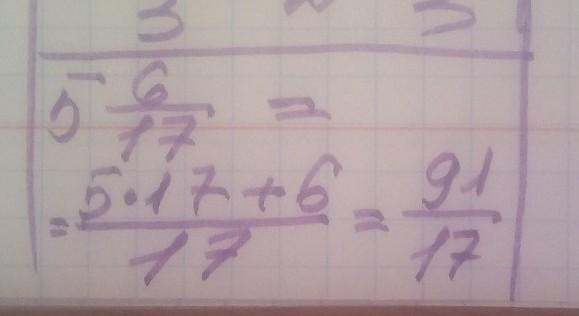 3 3
5 6/17 =
= 5·17+6/17 = 91/17